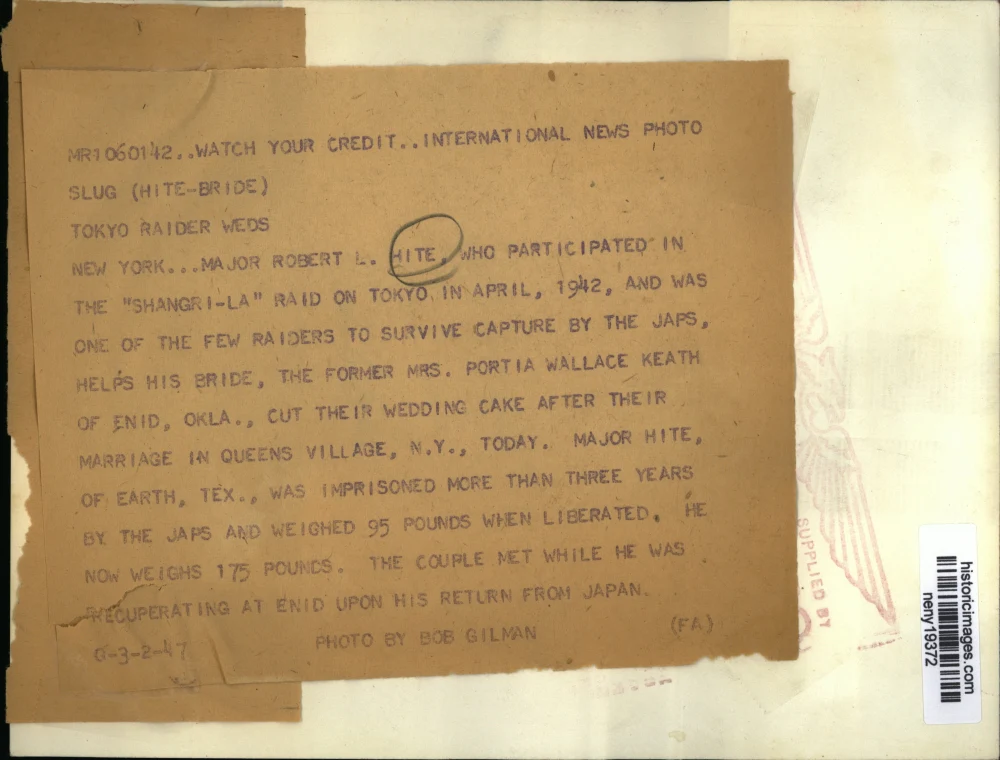 MR1060142..WATCH YOUR CREDIT..INTERNATIONAL NEWS PHOTO
SLUG (HITE-BRIDE)
TOKYO RAIDER WEDS
NEW YORK...MAJOR ROBERT L. HITE, WHO PARTICIPATED IN
THE "SHANGRI-LA" RAID ON TOKYO IN APRIL, 1942, AND WAS
ONE OF THE FEW RAIDERS TO SURVIVE CAPTURE BY THE JAPS,
HELPS HIS BRIDE, THE FORMER MRS. PORTIA WALLACE KEATH
OF ENID, OKLA., CUT THEIR WEDDING CAKE AFTER THEIR
MARRIAGE IN QUEENS VILLAGE, N.Y., TODAY. MAJOR HITE,
OF EARTH, TEX., WAS IMPRISONED MORE THAN THREE YEARS
BY THE JAPS AND WEIGHED 95 POUNDS WHEN LIBERATED. HE
NOW WEIGHS 175 POUNDS. THE COUPLE MET WHILE HE WAS
RECUPERATING AT ENID UPON HIS RETURN FROM JAPAN.
PHOTO BY BOB GILMAN (FA)
3-2-47
SUPPLIED BY
historicimages.com
neny19372